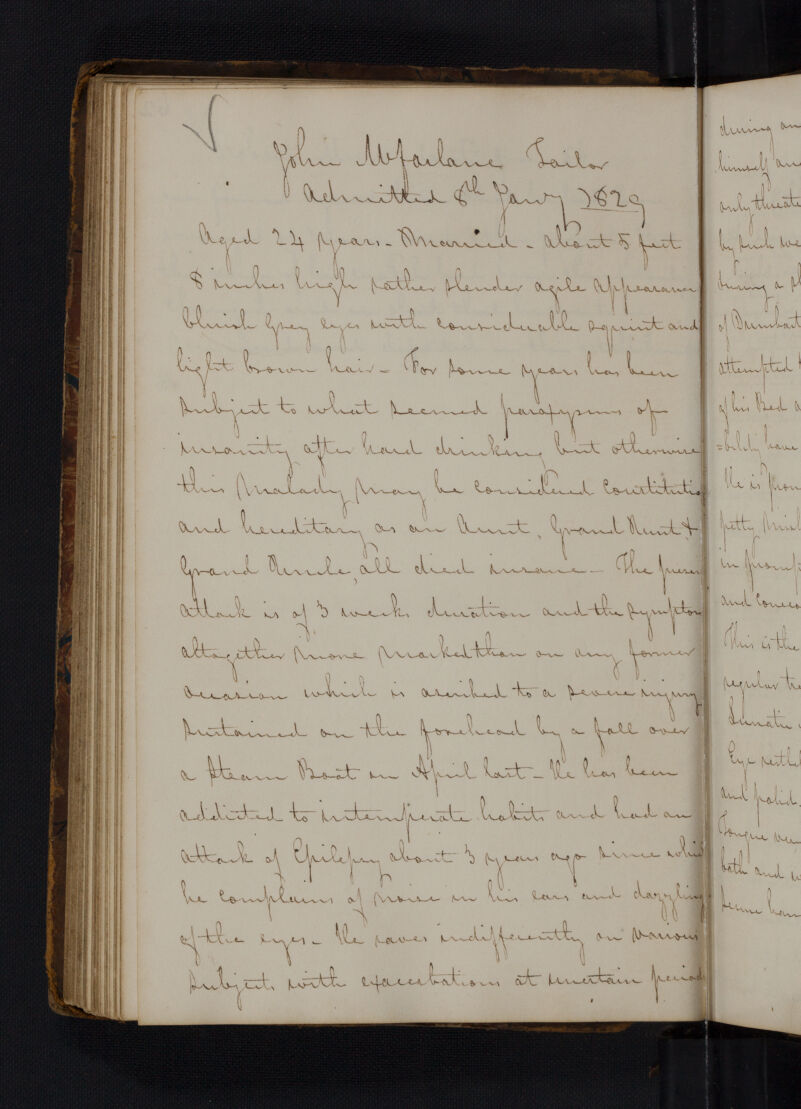 John Mcfarlane Tailor
Admitted 8th Jany 1829
Aged 24 years - Married - about 5 feet
8 inches high rather slender agile appearance
bluish Grey eyes with considerable squint and
light brown hair - For some years has been
subject to what seemed paroxysms of
insanity after hard drinking but otherwise
this Malady may be considered Constitutio
and hereditary as an Aunt, Grand Aunt &
Grand Uncle, all died insane - The presen
attack is of 3 weeks duration and the symptom
altogether more marked than on any former
occasion which is ascribed to a severe injury
sustained on the forehead by a fall over
a Steam Boat in April last - He has been
addicted to intemperate habits and had an
attack of Epilepsy about 3 years ago since whic
he complains of noise in his ears and dazzling
of the eyes - He raves indifferently on various
subjects with exacerbations at uncertain period
during an
himself an
only threate
by such we
during a
of Dumbart
attempted
of his Bed a
He is
petty
in
and
This is the
regular tre
Lunatic
Eye
and
Tongue
bath and w